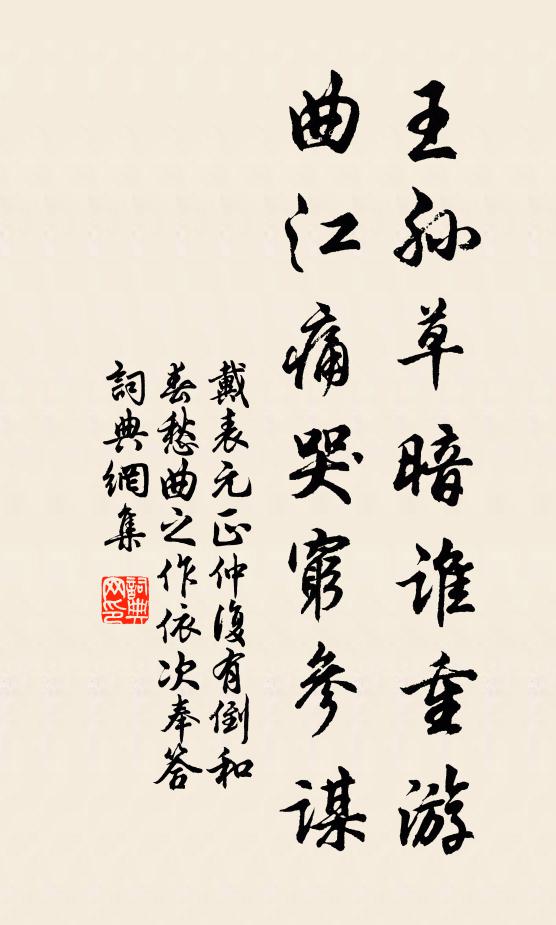 王孙草暗谁重游
曲江痛哭窮參謀
戴表元正仲復有倒和
春愁曲之作依次奉答
詞典網集
詞典
网印